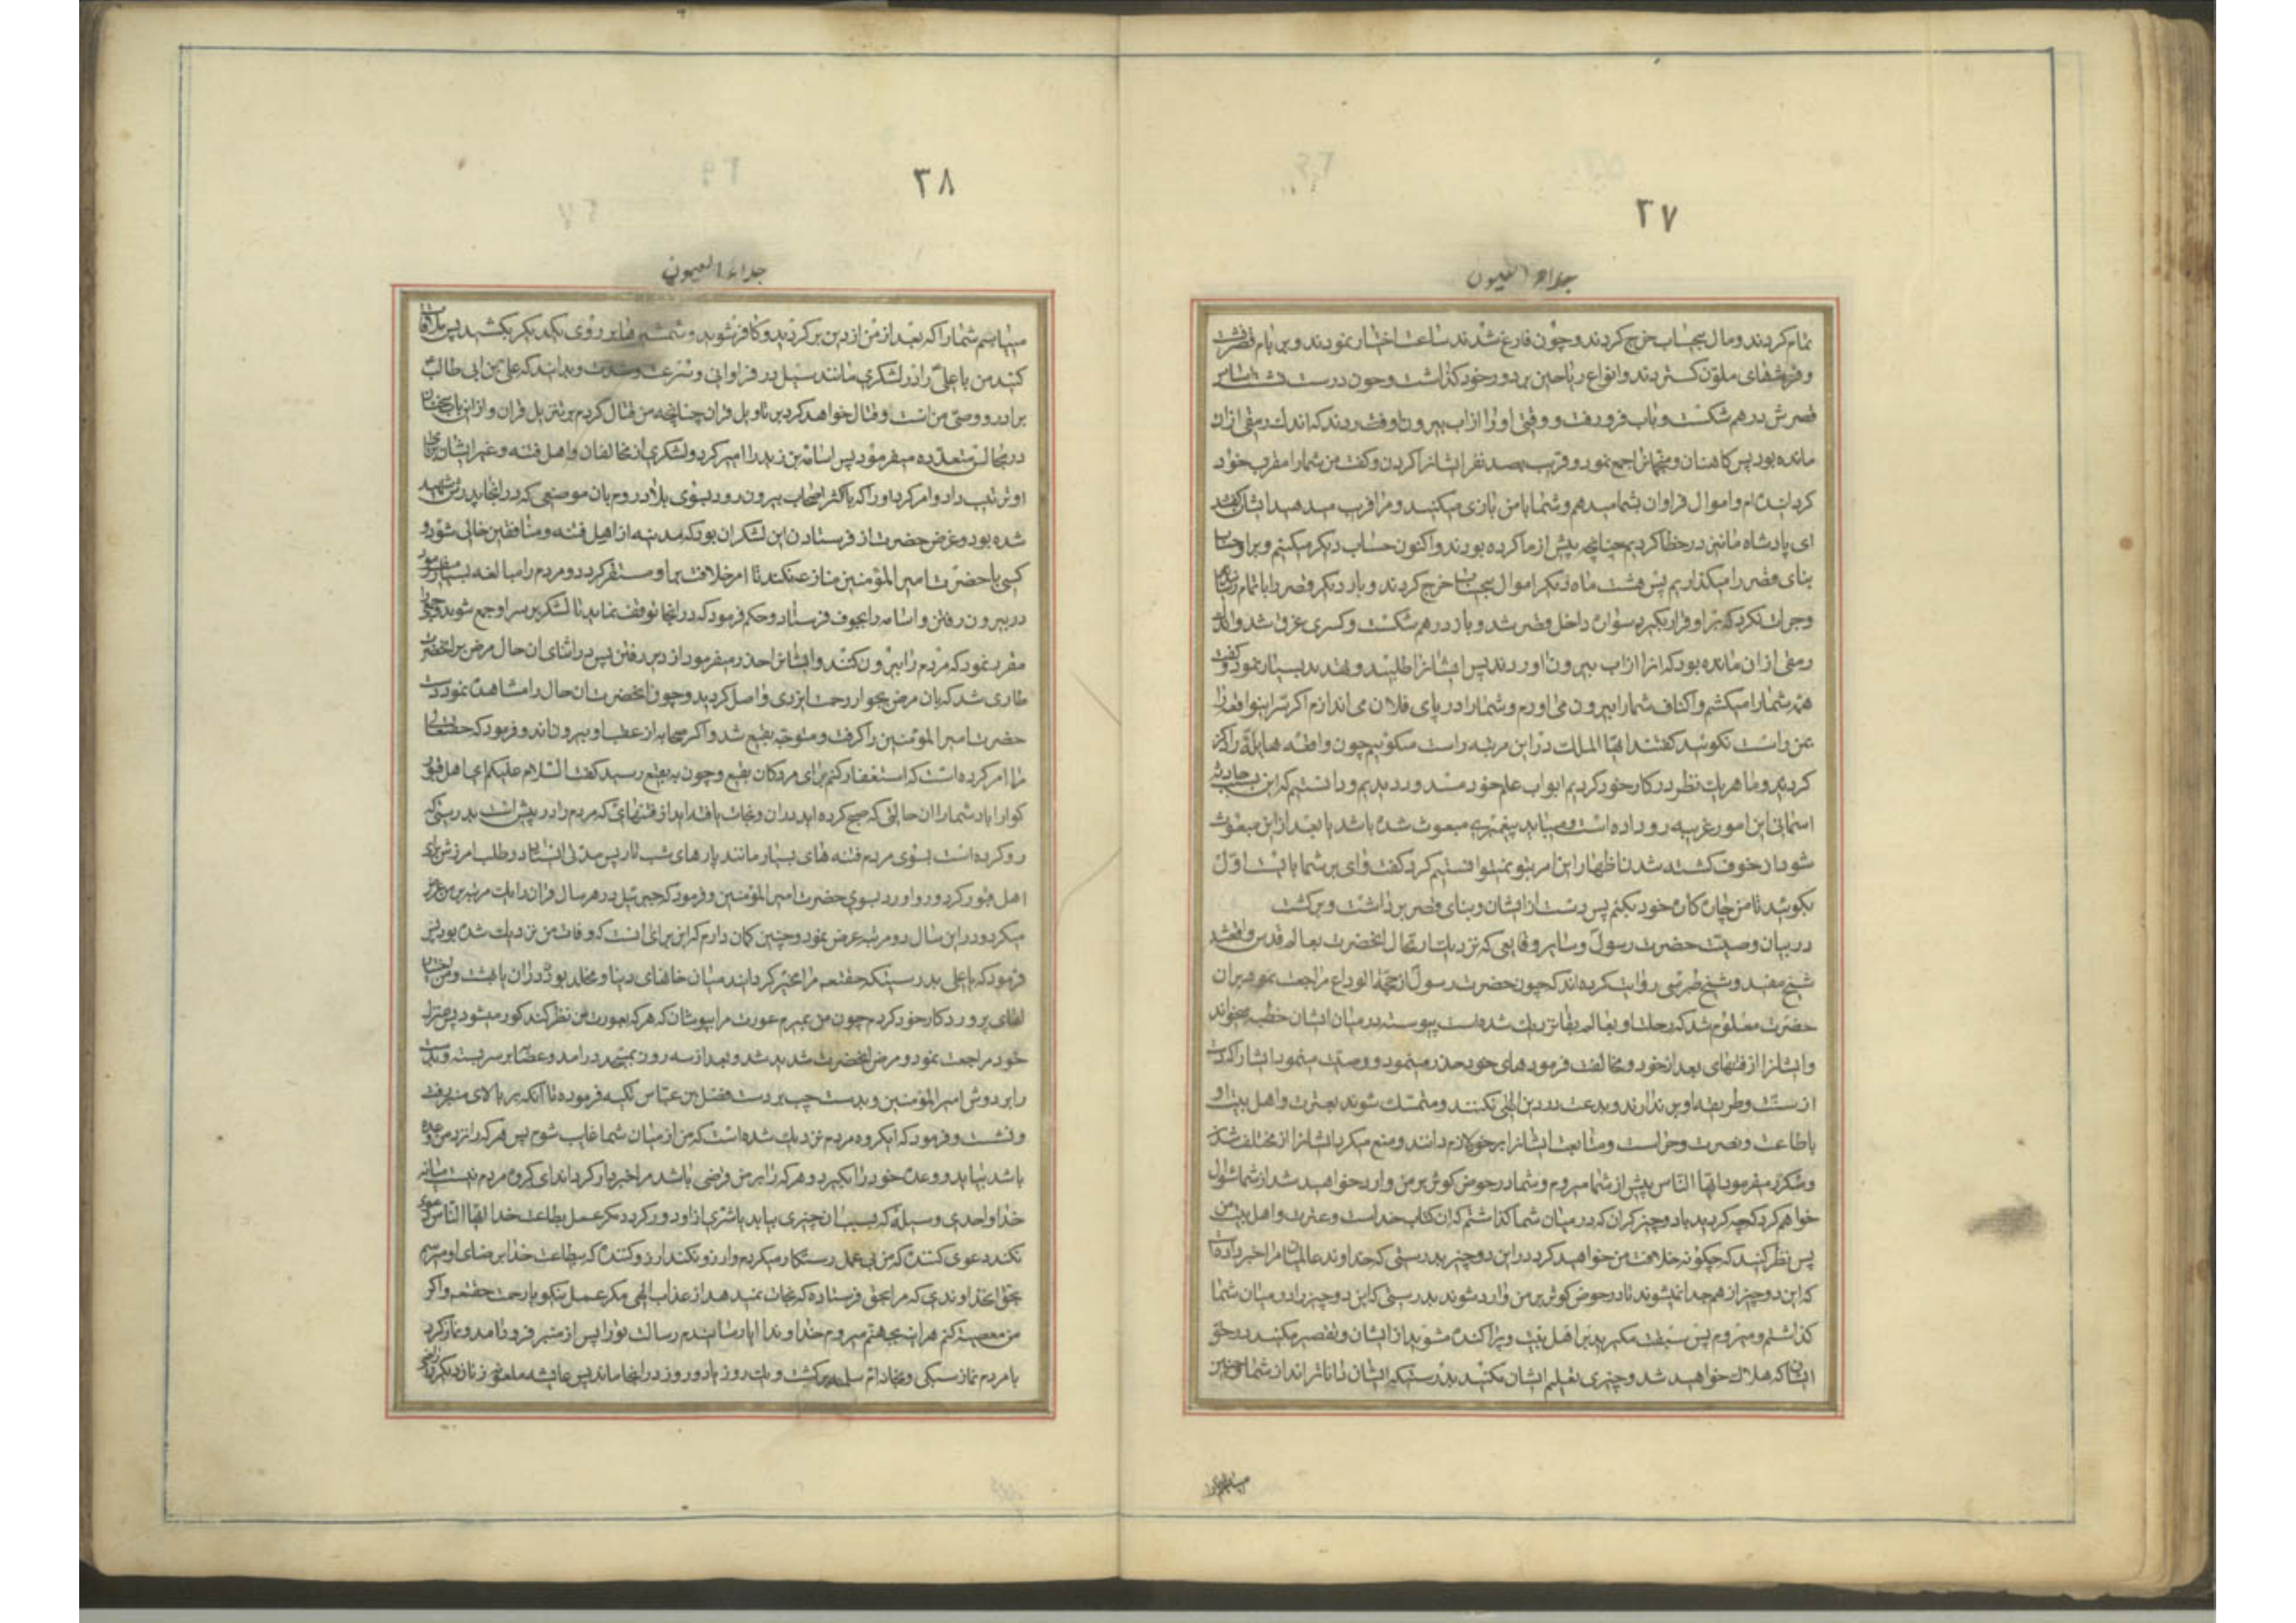 ۲۷
جلاء العیون
تمام کردند و مال بیحساب خرج کردند و چون فارغ شدند ساعت اختیار نمودند و بر بام قصر
و فرشهای ملون گستردند و انواع ریاحین بر دور خود گذاشت و چون درست نشست
قصرش درهم شکست و باب فرو رفت و وقتی او را از آب بیرون آوردند که اندک رمقی از آن
مانده بود پس کاهنان و منجمان را جمع نمود و قریب بصد نفر ایشانرا کردن و گفت من شما را مقرب خود
گردانیده‌ام و اموال فراوان بشما میدهم و شما با من بازی میکنید و مرا فریب میدهید ایشان گفتند
ای پادشاه ما نیز در خطا کردیم چنانچه پیش از ما کرده بودند و اکنون حساب دیگر میکنیم و بر
بنای قصر را میگذاریم پس هشت ماه دیگر اموال بیحساب خرج کردند و بار دیگر قصر را تمام
و جرات نکرد که بر او قرار گیرد سواره داخل قصر شد و باز درهم شکست و کسری غرق شد و اندک
رمقی از آن مانده بود که او را از آب بیرون آوردند پس ایشانرا طلبید و تهدید بسیار نمود و گفت
همه شما را میکشم و اکتاف شما را بیرون می‌آورم و شما را در پای فیلان می‌اندازم اگر
من راست نگوئید گفتند ایها الملک در این مرتبه راست میگوئیم چون واقعه هایله را ذکر
کردی و ما هر یک نظر در کار خود کردیم ابواب علم خود مسدود دیدیم و دانستیم که این حادثه
آسمانی این امور غریبه رو داده است و میباید پیغمبری مبعوث شده باشد یا بعد از این مبعوث
شود از خوف کشته شدن اظهار این امر بتو نمیتوانستیم کرد گفت وای بر شما بایست اول
بگوئید تا من چاره کار خود بکنم پس دست از ایشان و بنای قصر برداشت و برگشت
در بیان وصیت حضرت رسول و سایر وقایعی که نزدیک ارتحال آنحضرت بعالم قدس واقع شد
شیخ مفید و شیخ طبرسی روایت کرده‌اند که چون حضرت رسول از حجة الوداع مراجعت نمود بر آن
حضرت معلوم شد که رحلت او بعالم بقا نزدیک شده است پیوسته در میان ایشان خطبه میخواند
و ایشانرا از فتنهای بعد از خود و مخالفت فرمودهای خود حذر مینمود و وصیت مینمود ایشانرا که دست
از سنت و طریقه او بر ندارند و بدعت در دین الهی نکنند و متمسک شوند بعترت و اهل بیت او
باطاعت و نصرت و حراست و متابعت ایشانرا بر خود لازم دانند و منع میکرد ایشانرا از مختلف شدن
و مکرر میفرمود ایها الناس پیش از شما میروم و شما در حوض کوثر بر من وارد خواهید شد از شما سئوال
خواهم کرد که چه کردید با دو چیز گران که در میان شما گذاشتم که آن کتاب خداست و عترت و اهل بیت من
پس نظر کنید که چگونه خلافت من خواهید کرد در این دو چیز بدرستی که خداوند عالمیان مرا خبر داده است
که این دو چیز از هم جدا نمیشوند تا در حوض کوثر بر من وارد شوند بدرستی که این دو چیز را در میان شما
گذاشتم و میروم پس سبقت مگیرید بر اهل بیت و پراکنده مشوید از ایشان و تقصیر مکنید در حق
ایشان که هلاک خواهید شد و چیزی تعلیم ایشان مکنید بدرستیکه ایشان داناترند از شما
۳۸
جلاء العیون
مییابم شما را که بعد از من از دین برگردید و کافر شوید و شمشیرها بر روی یکدیگر بکشید پس ملاقات
کنید من یا علی را در لشکری مانند سیل در فراوانی و سرعت و شدت و بدانید که علی بن ابی طالب
برادر و وصی من است و قتال خواهد کرد بر تاویل قران چنانچه من قتال کردم بر تنزیل قران و از این باب سخنان
در مجالس متعدده میفرمود پس اسامة بن زید را امیر کرد و لشکری از مخالفان و اهل فتنه و غیر ایشان برای
او ترتیب داد و امر کرد او را که با اکثر اصحاب بیرون رود بسوی بلاد روم بان موضعی که در آنجا پدرش شهید
شده بود و غرض حضرت از فرستادن این لشکر آن بود که مدینه از اهل فتنه و منافقین خالی شود و
کسی با حضرت امیر المؤمنین منازعه نکند تا امر خلافت بر او مستقر گردد و مردم را مبالغه بسیار میفرمود
در بیرون رفتن و اسامه را بجرف فرستاد و حکم فرمود که در آنجا توقف نماید تا لشکر بر سر او جمع شوند و جمعی
مقرر نمود که مردم را بیرون کنند و ایشانرا حذر میفرمود از دیر رفتن پس در اثنای آن حال مرض بر آنحضرت
طاری شد که بآن مرض بجوار رحمت ایزدی واصل گردید و چون آنحضرت آن حال را مشاهده نمود دست
حضرت امیر المؤمنین را گرفت و متوجه بقیع شد و اکثر صحابه از عقب او بیرون آمدند و فرمود که حقتعالی
مرا امر کرده است که استغفار کنم برای مردگان بقیع و چون به بقیع رسید گفت السلام علیکم ای اهل قبور
گوارا باد شما را آن حالتی که صبح کرده‌اید در آن و نجات یافته‌اید از فتنهائی که مردم را در پیش است بدرستی که
رو کرده است بسوی مردم فتنه‌های بسیار مانند پارهای شب تار پس مدتی ایستاد و طلب آمرزش برای
اهل قبور کرد و رو آورد بسوی حضرت امیر المؤمنین و فرمود که جبرئیل در هر سال قران را یک مرتبه بر من عرض
میکرد و در این سال دو مرتبه عرض نمود و چنین گمان دارم که این برای آنست که وفات من نزدیک شده بود پس
فرمود که یا علی بدرستیکه حقتعالی مرا مخیر گردانید میان خزانهای دنیا و مخلد بودن در آن یا بهشت و من اختیار
لقای پروردگار خود کردم چون من بمیرم عورت مرا بپوشان که هر که بعورت من نظر کند کور میشود پس بمنزل
خود مراجعت نمود و مرض آنحضرت شدید شد و بعد از سه روز بمسجد درآمد و عصابه بر سر بسته و بدست
را بر دوش امیر المؤمنین و بدست چپ بر دست فضل بن عباس تکیه فرموده تا آنکه بر بالای منبر رفت
و نشست و فرمود که ای گروه مردم نزدیک شده است که من از میان شما غایب شوم پس هر که را نزد من وعده
باشد بیاید و وعده خود را بگیرد و هر که را بر من قرضی باشد مرا خبردار گرداند ای گروه مردم نیست میانه
خدا و احدی وسیلهٔ که بسبب آن چیزی بیابد یا شری از او دور گردد مگر عمل بطاعت خدا ایها الناس دعوی
نکند دعوی کننده که من بی عمل رستگار میگردم و آرزو نکند آرزو کننده که بیطاعت خدا برضای او میرسم
بحق خداوندی که مرا بحق فرستاده که نجات نمیدهد از عذاب الهی مگر عمل نیکو با رحمت حقتعالی و اگر
من معصیت کنم هر آینه بجهنم میروم خداوندا آیا رسانیدم رسالت تو را پس از منبر فرود آمد و نماز کرد
با مردم نماز سبکی و بخانه ام سلمه برگشت و یک روز یا دو روز در آنجا ماند پس عایشه ملعونه زنان دیگر را راضی